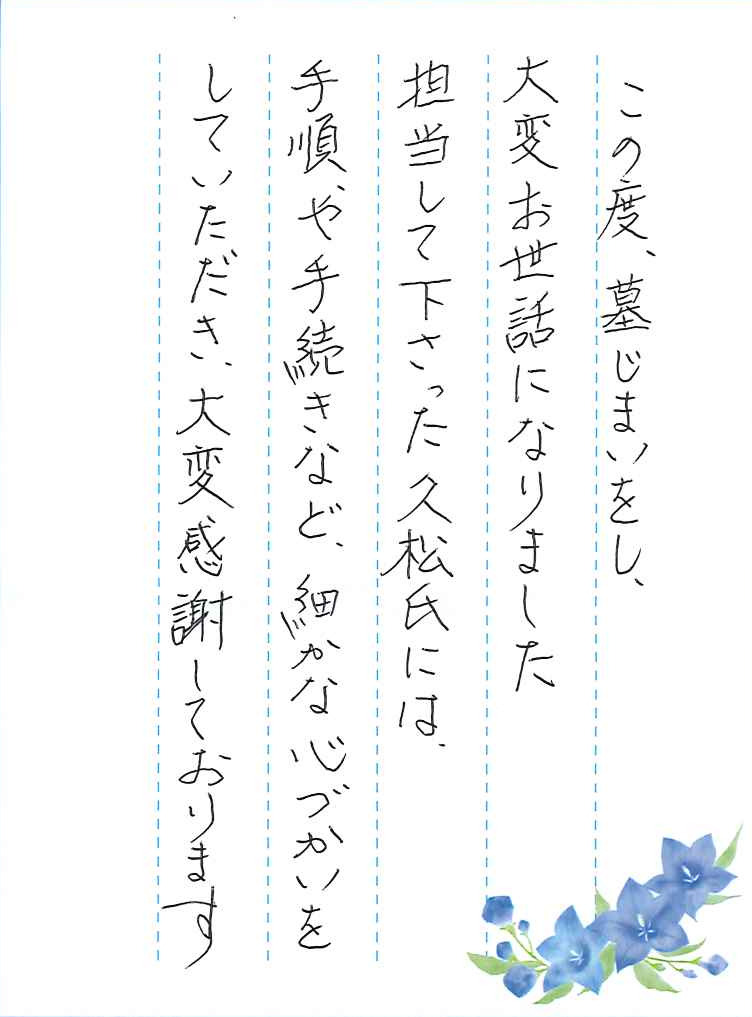 この度、墓じまいをし、
大変お世話になりました
担当して下さった久松氏には、
手順や手続きなど、細かな心づかいを
していただき、大変感謝しております